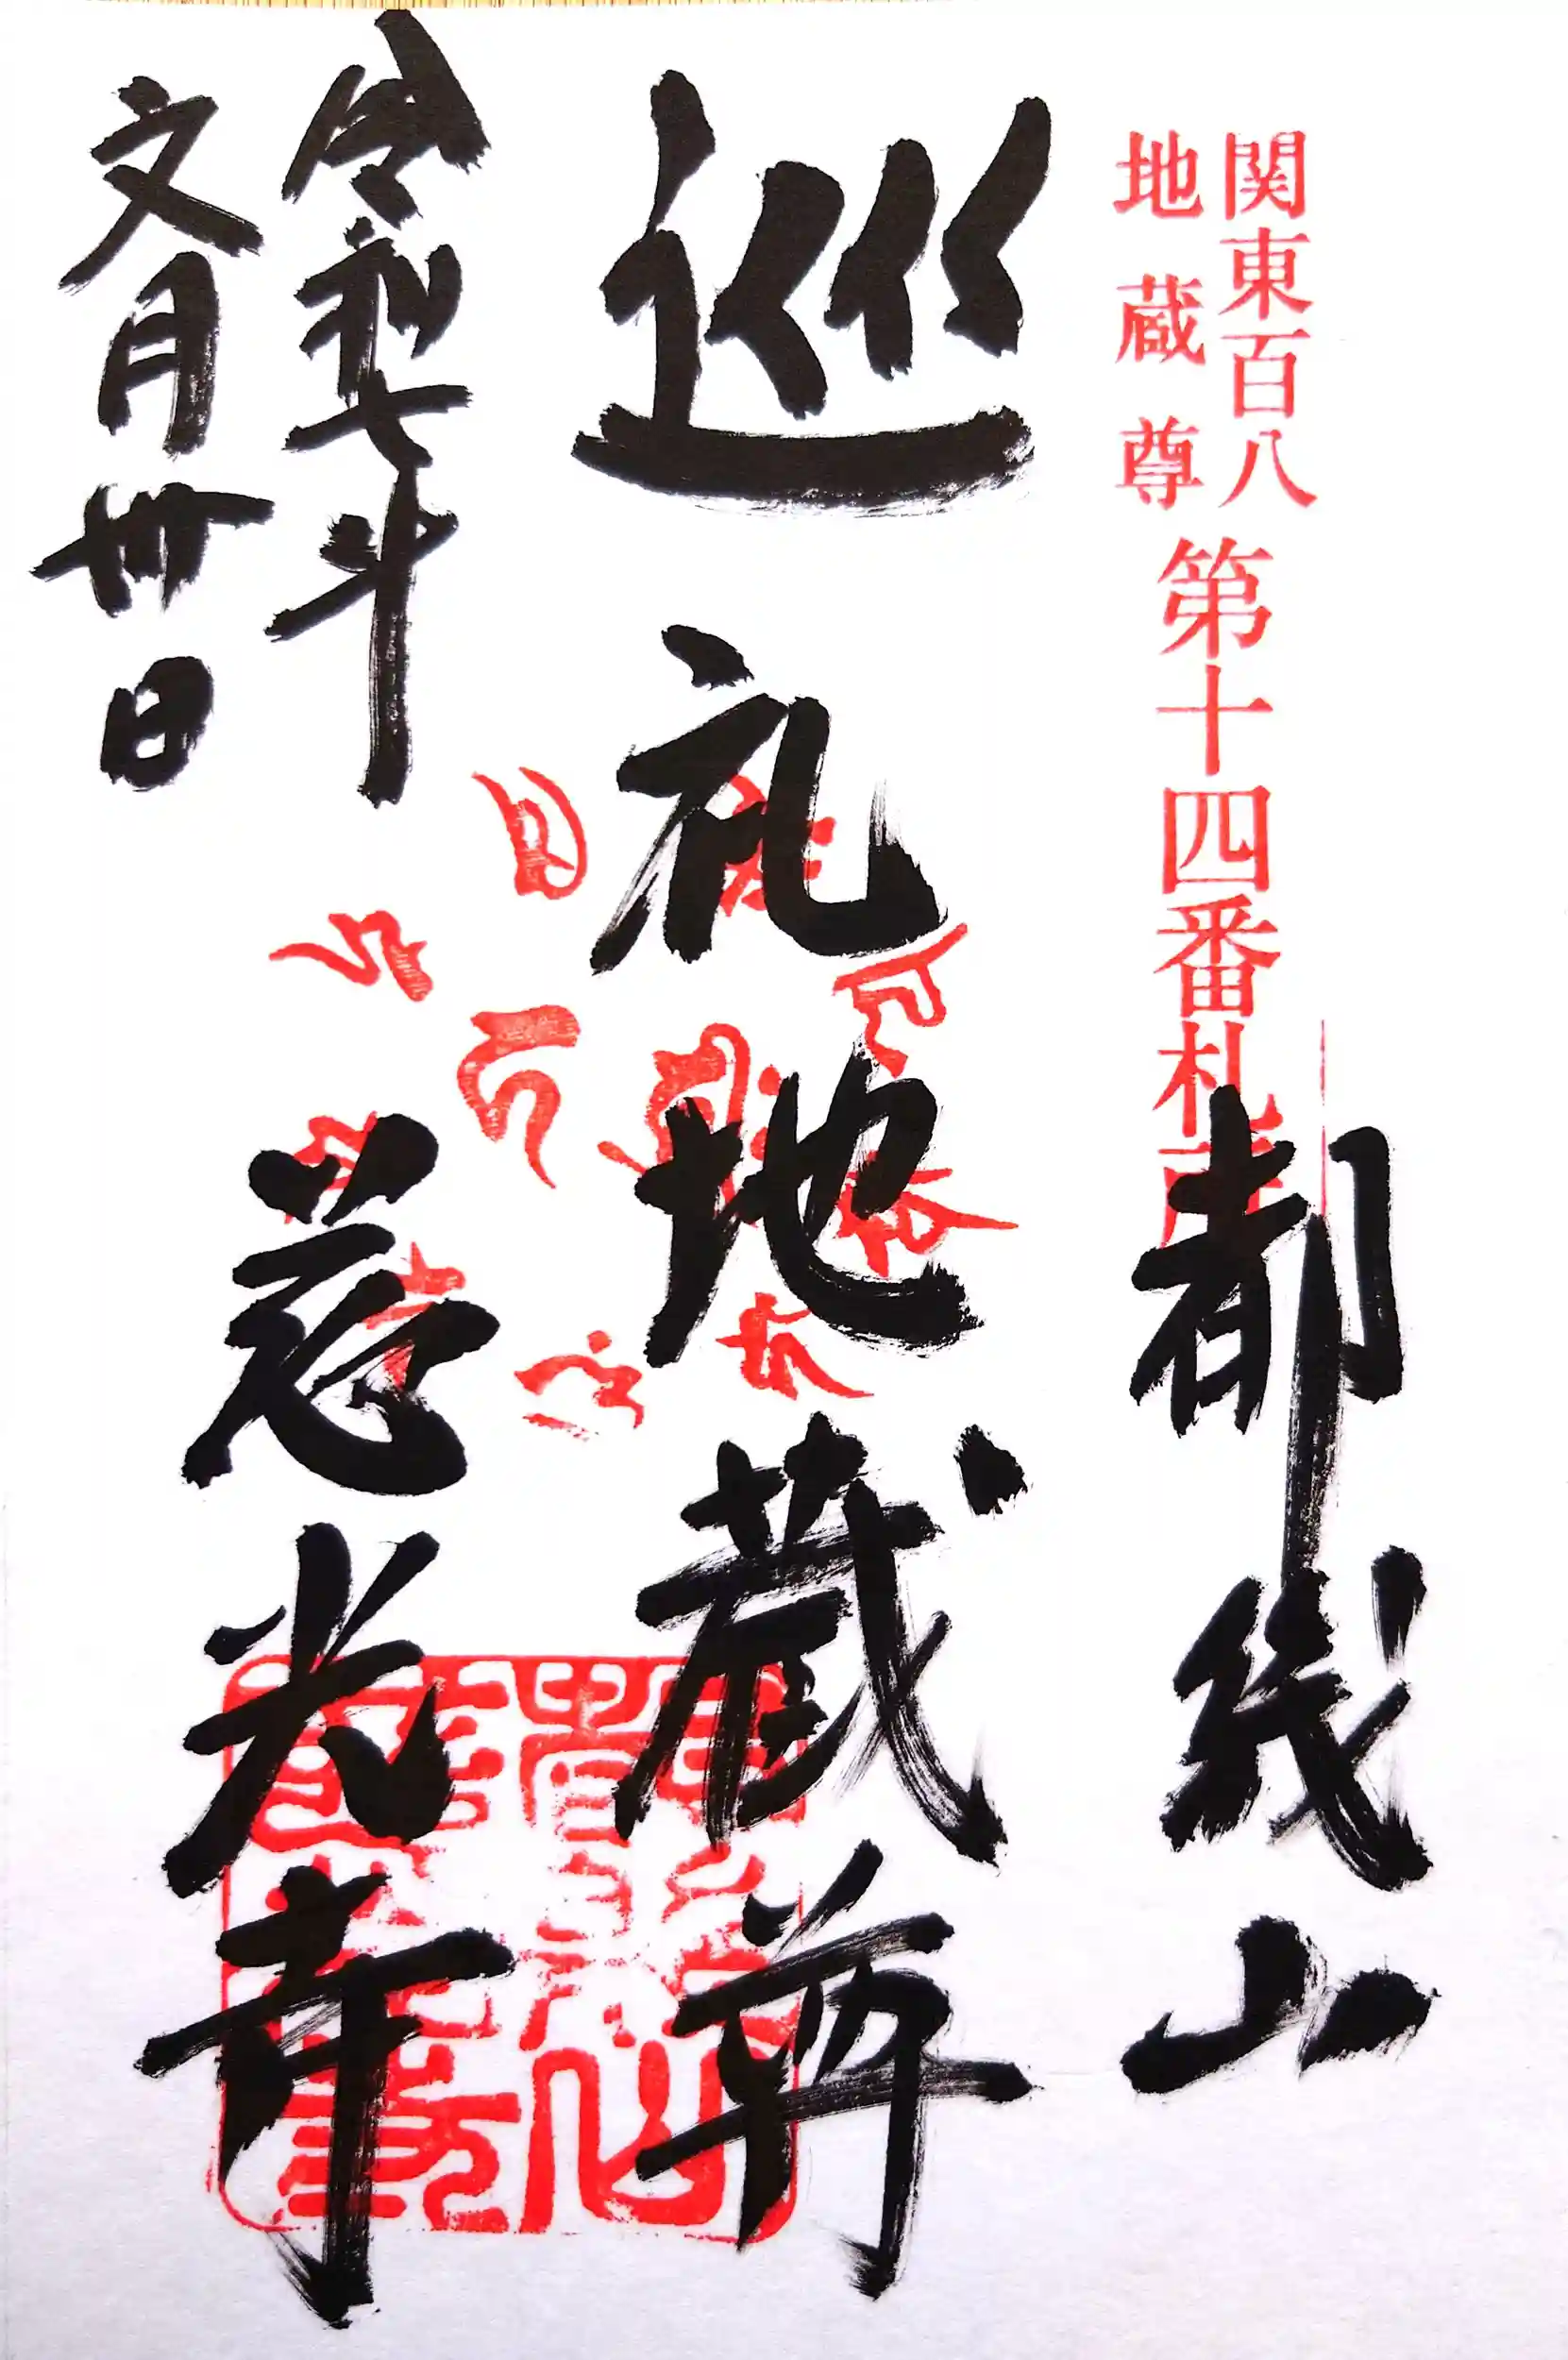 関東百八
地蔵尊
第十四番札所
都幾山
巡礼地蔵尊
令和七年
文月卅日
慈光寺